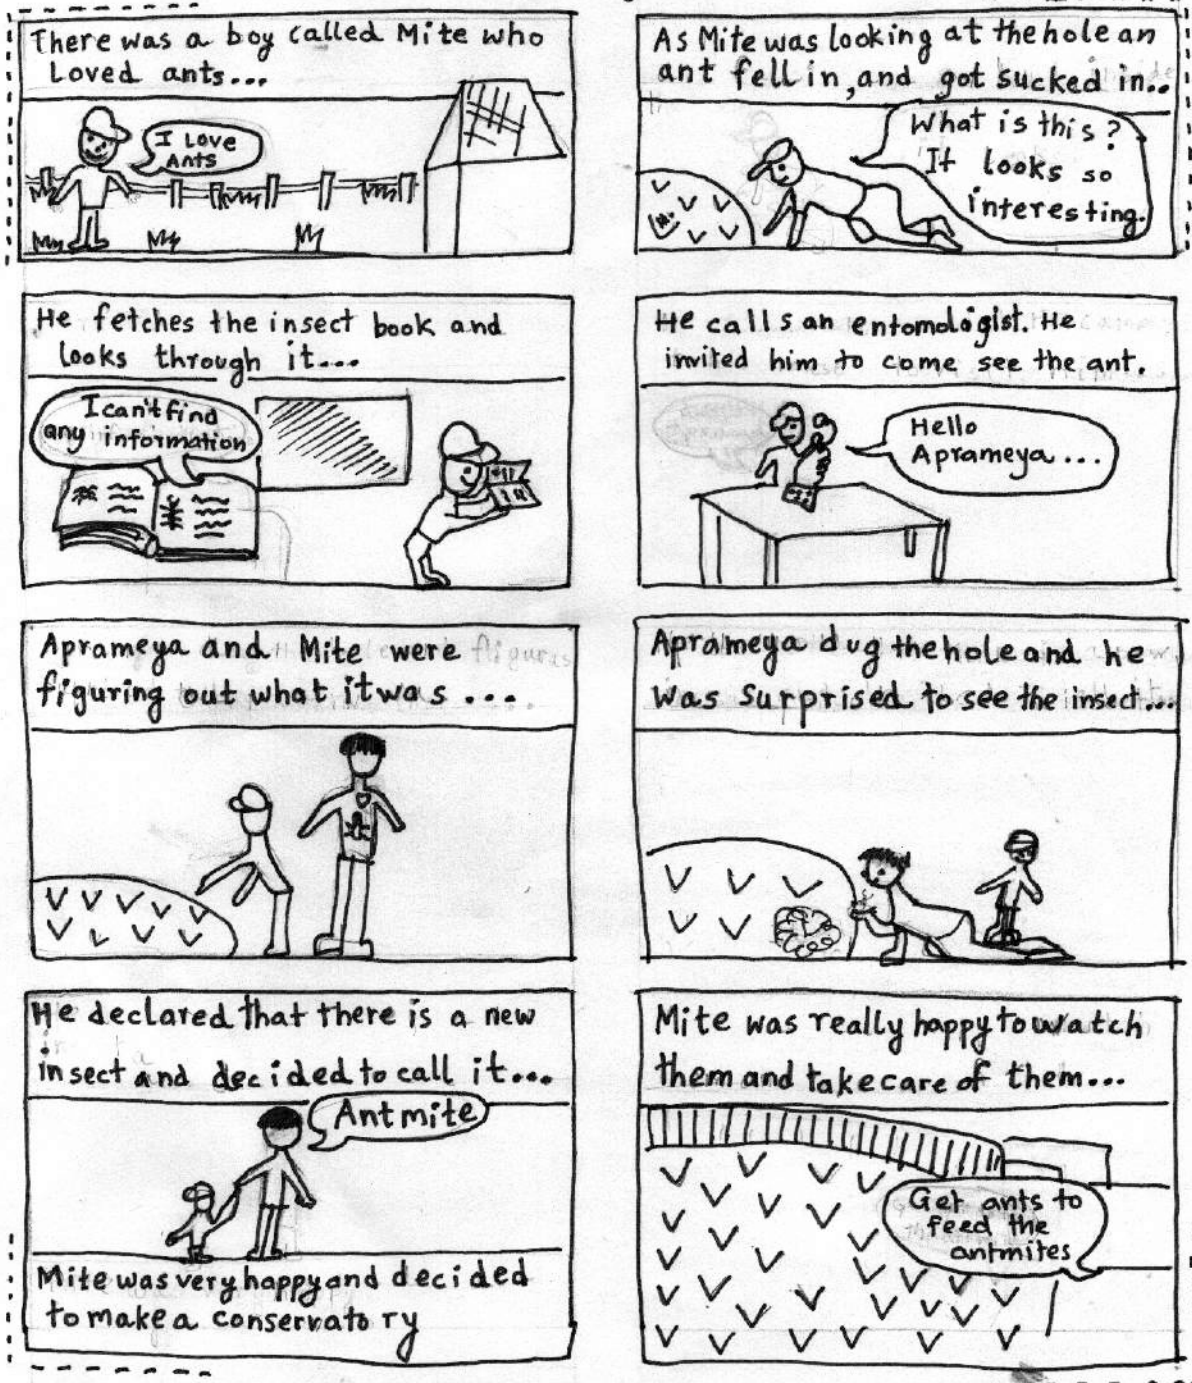 There was a boy called Mite who
Loved ants...
I Love
Ants
As Mite was looking at the hole an
ant fell in, and got sucked in..
What is this?
It looks so
interesting.
He fetches the insect book and
looks through it...
I can't find
any information
He calls an entomologist. He
invited him to come see the ant.
Hello
Aprameya...
Aprameya and Mite were
figuring out what it was ...
Aprameya dug the hole and he
was surprised to see the insect...
He declared that there is a new
insect and decided to call it...
Antmite
Mite was very happy and decided
to make a conservatory
Mite was really happy to watch
them and take care of them...
Get ants to
feed the
antmites